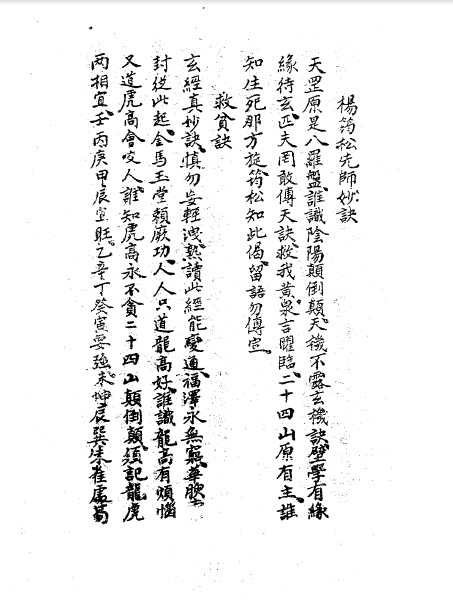 楊筠松先師妙訣
天罡原是八羅盤誰識陰陽顛倒顛天機不露玄機訣壁學有緣
緣待玄匹夫罔敢傳天訣救我黄泉言曜臨二十四山原有主誰
知生死那方旋筠松知此偈留語勿傳宣
救貧訣
玄經真妙訣慎勿妄輕洩熟讀此經能變通福澤永無窮華腴
封從此起金馬玉堂賴厥功人人只道龍高好誰識龍高有煩惱
又道虎高會咬人誰知虎高永不貪二十四山顛倒顛須記龍虎
两相宜壬丙庚甲辰宜旺乙辛丁癸寅要強未坤辰巽朱雀處